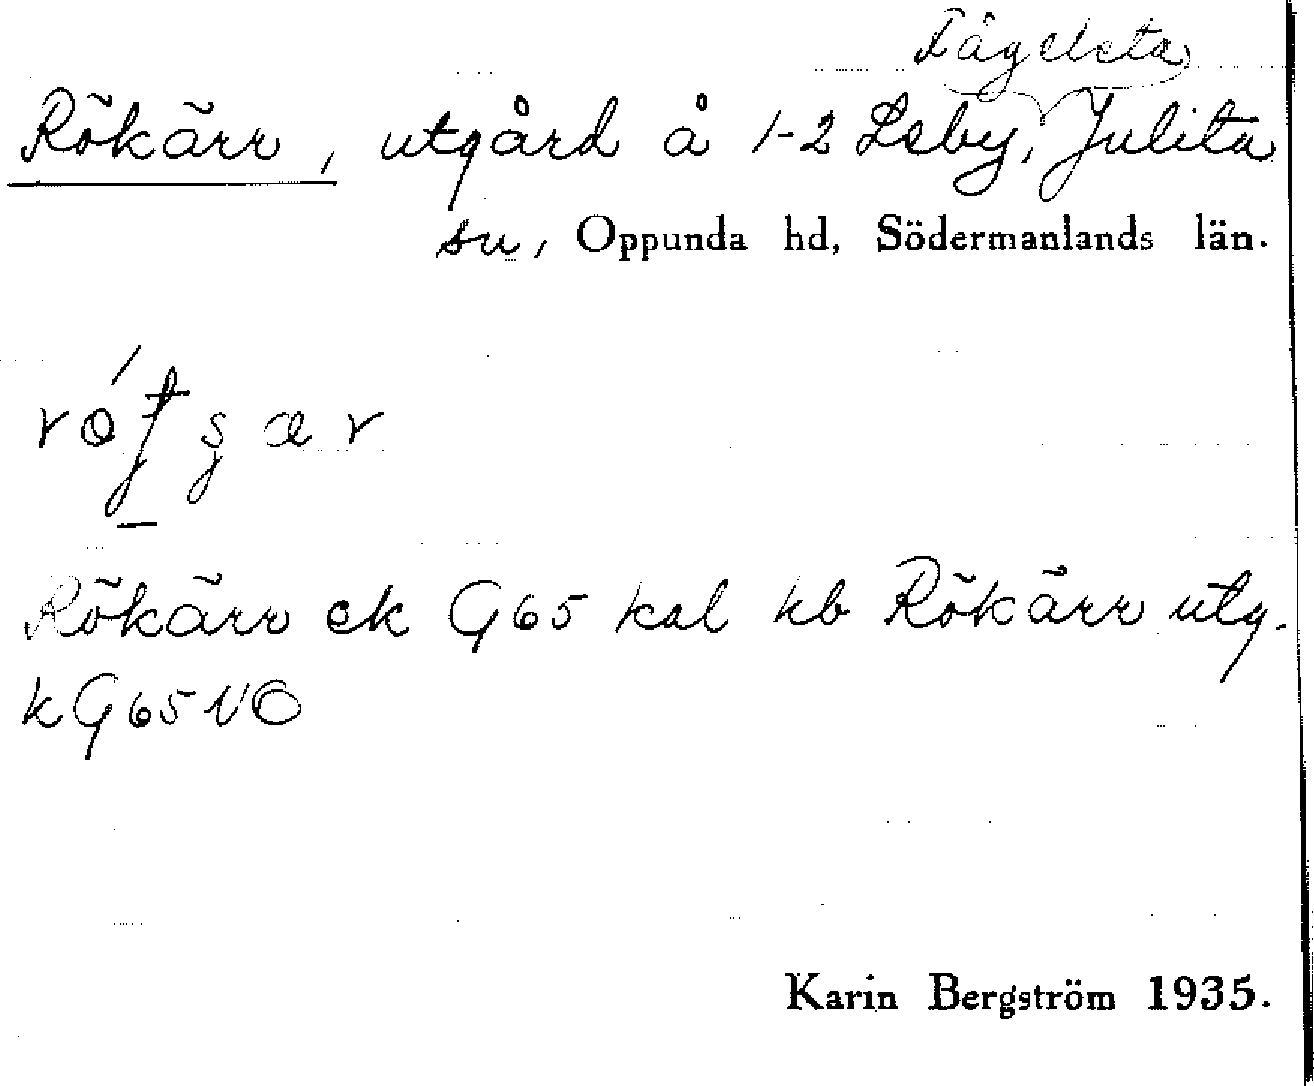 Fågelsta
Rökärr, utgård å 1-2 Leby, Julita
sn, Oppunda hd, Södermanlands län.
Rökärr ek G65 kal hb Rökärr utg.
k G65 NO
Karin Bergström 1935.